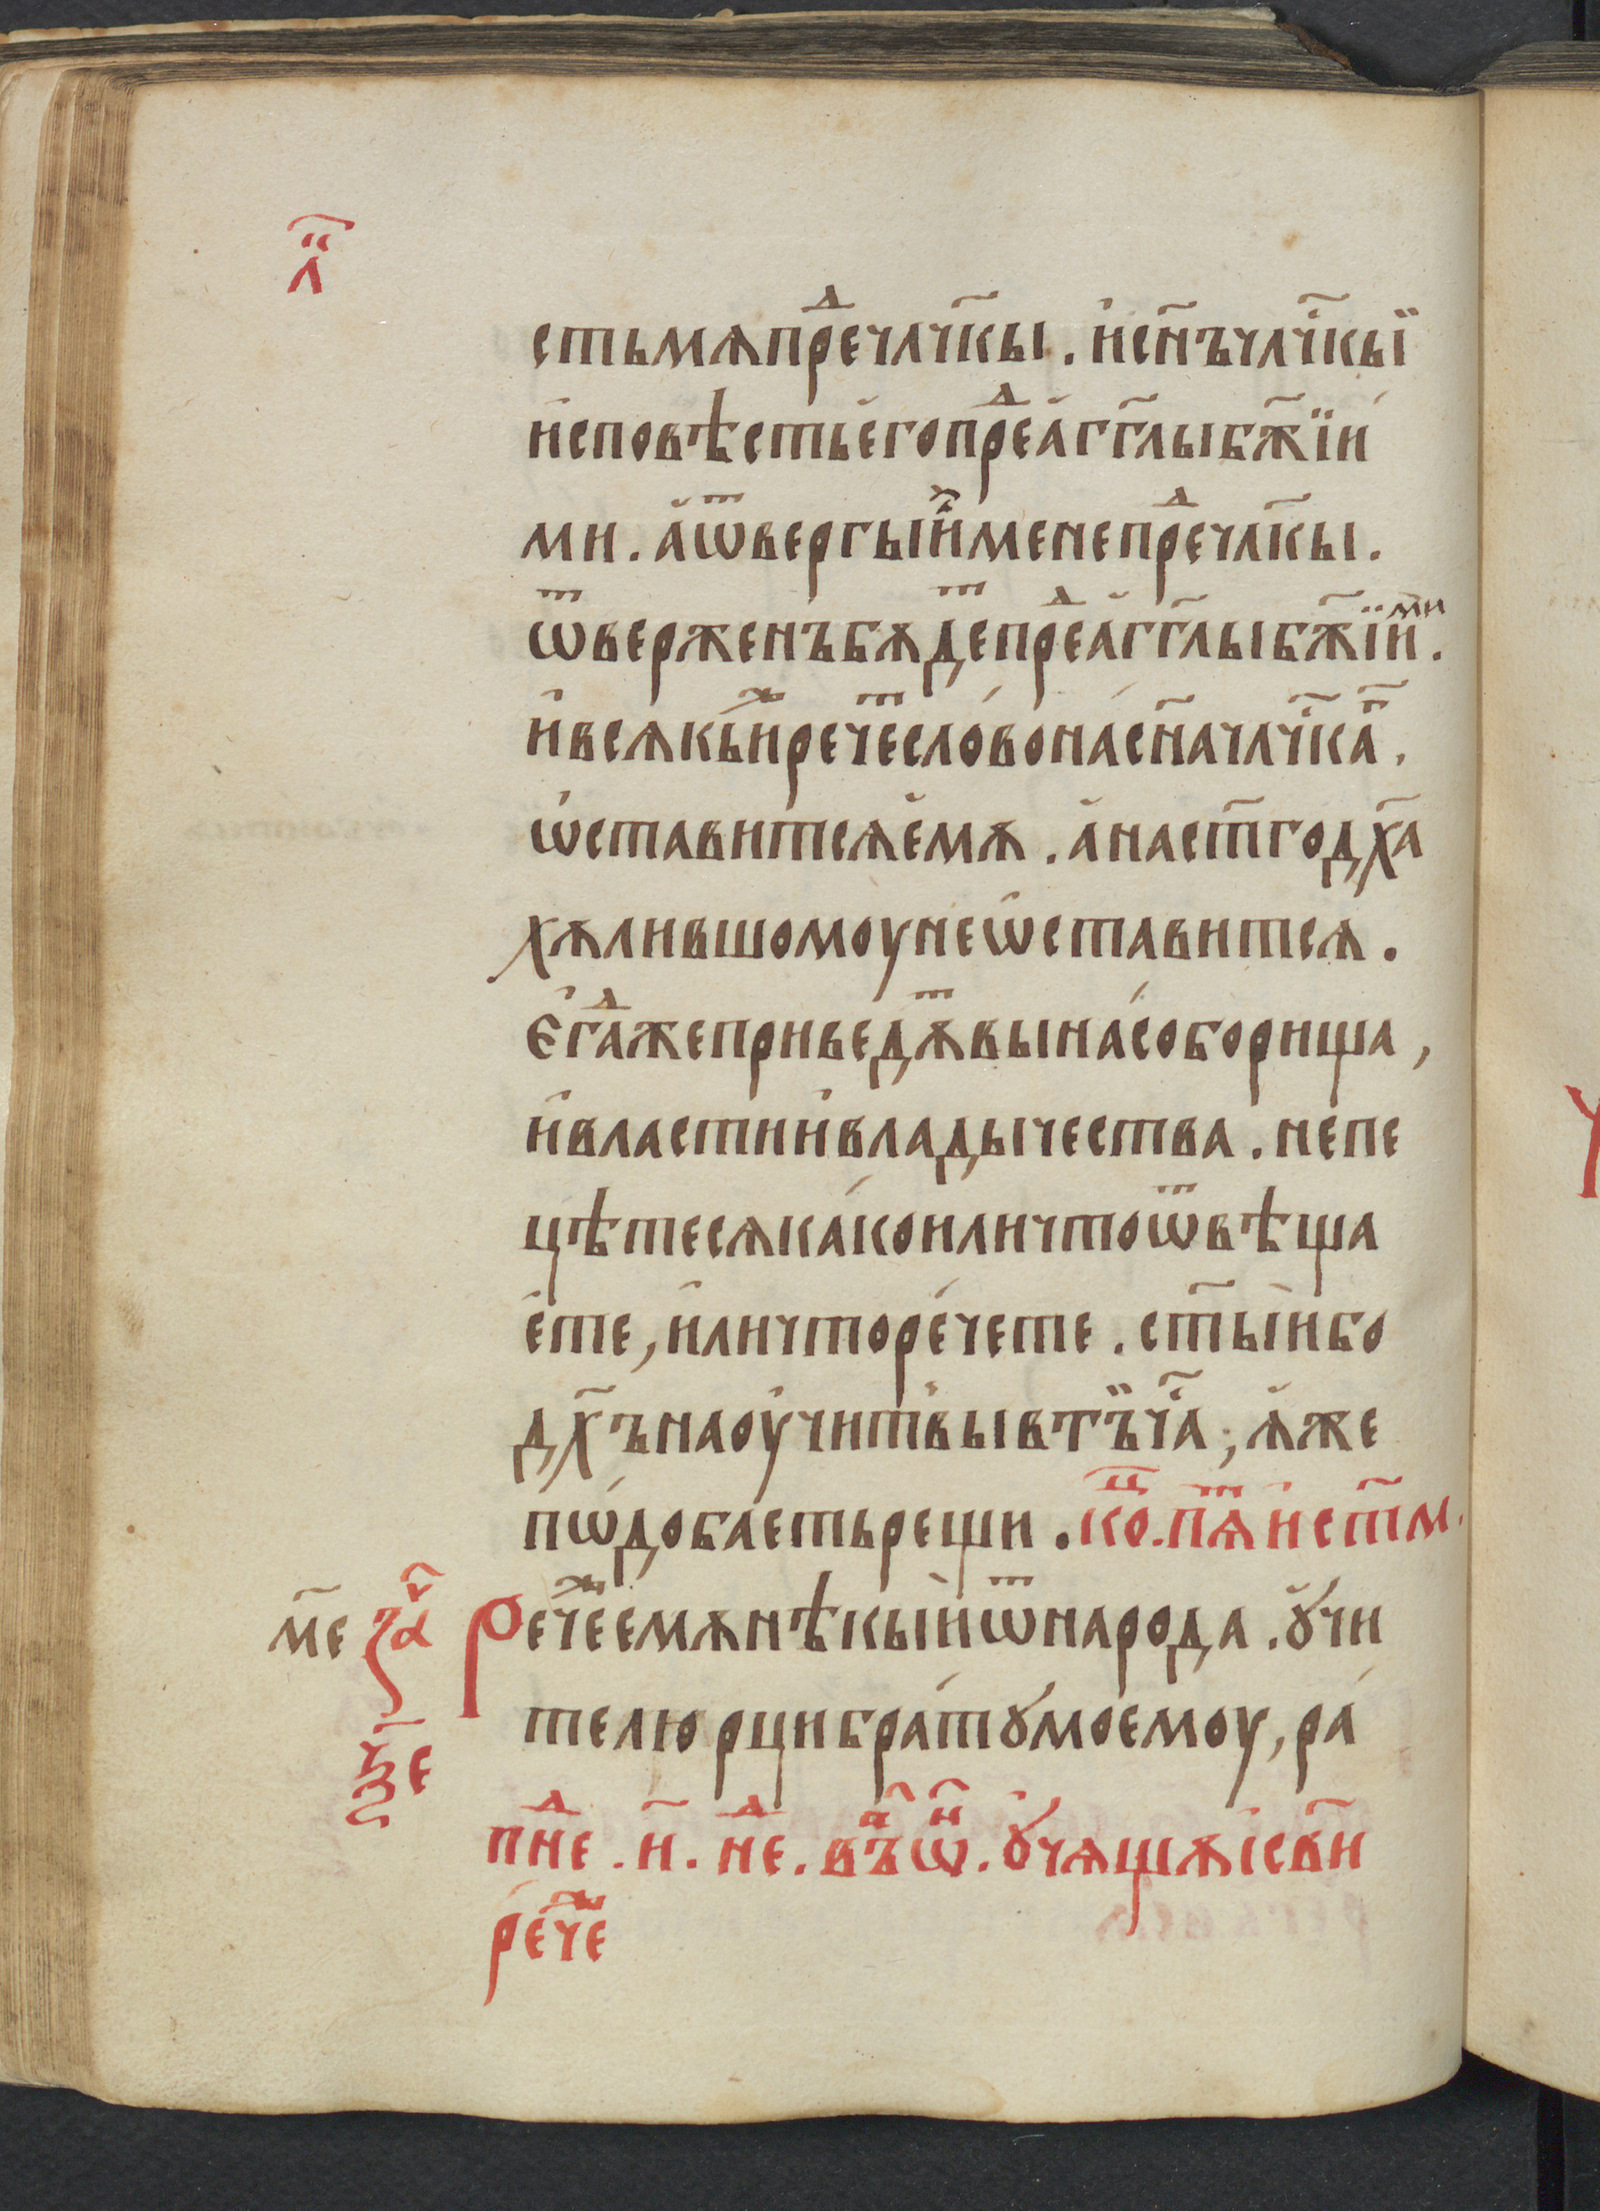 л҃
стьмѧпрⷣечл҃чкы. и҆сн҃ъчл҃чкыї
и҆сповѣстьѐгопрⷣеа҆гг҃лыбж҃їи
ми. а҆ѿвергыи҆ⷤменепрⷣечл҃кы.
ѿверженъбѫдеⷮпрⷣеа҆гг҃лыбж҃їиⷨи.
и҆всѧкыиⷤречеⷮсло́вонасн҃ачл҃чкаⷢ҇.
ѡ҆ставитсѧе҆мѫ. а҆наст҃годх҃а
хѫлившомоунеѡ҆ставитсѧ.
Є҆гⷣажеприведѫⷮвынасоборища,
и҆властии҆владычества. непе
цѣтесѧка́коиличтоѿвѣща
е҆те, и҆личторе́чете. ст҃ыибо
дх҃ънаоу҆читвывтъ̈ч҃а, ꙗ҆же
пѡ́добае҆тьрещи. коⷰ.пѧⷮи҆ст҃м.
м҃е за҃ч Речеⷤемѫнѣкыиѿнарода. ꙋ҆чи
телюрцибра́тꙋмоемоу, ра́
р҃ѯе
пнⷣе. н҃. нⷣе. въⷧ҇ѡⷩ. ꙋ҆чѧщѫі҆св҃и
ре́чеⷤ